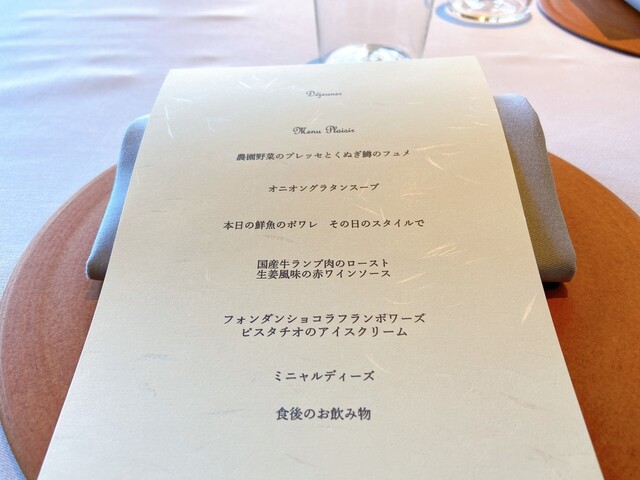 Déjeuner
Menu Plaisir
農園野菜のプレッセとくぬぎ鱒のフュメ
オニオングラタンスープ
本日の鮮魚のポワレ　その日のスタイルで
国産牛ランプ肉のロースト
生姜風味の赤ワインソース
フォンダンショコラフランボワーズ
ピスタチオのアイスクリーム
ミニャルディーズ
食後のお飲み物